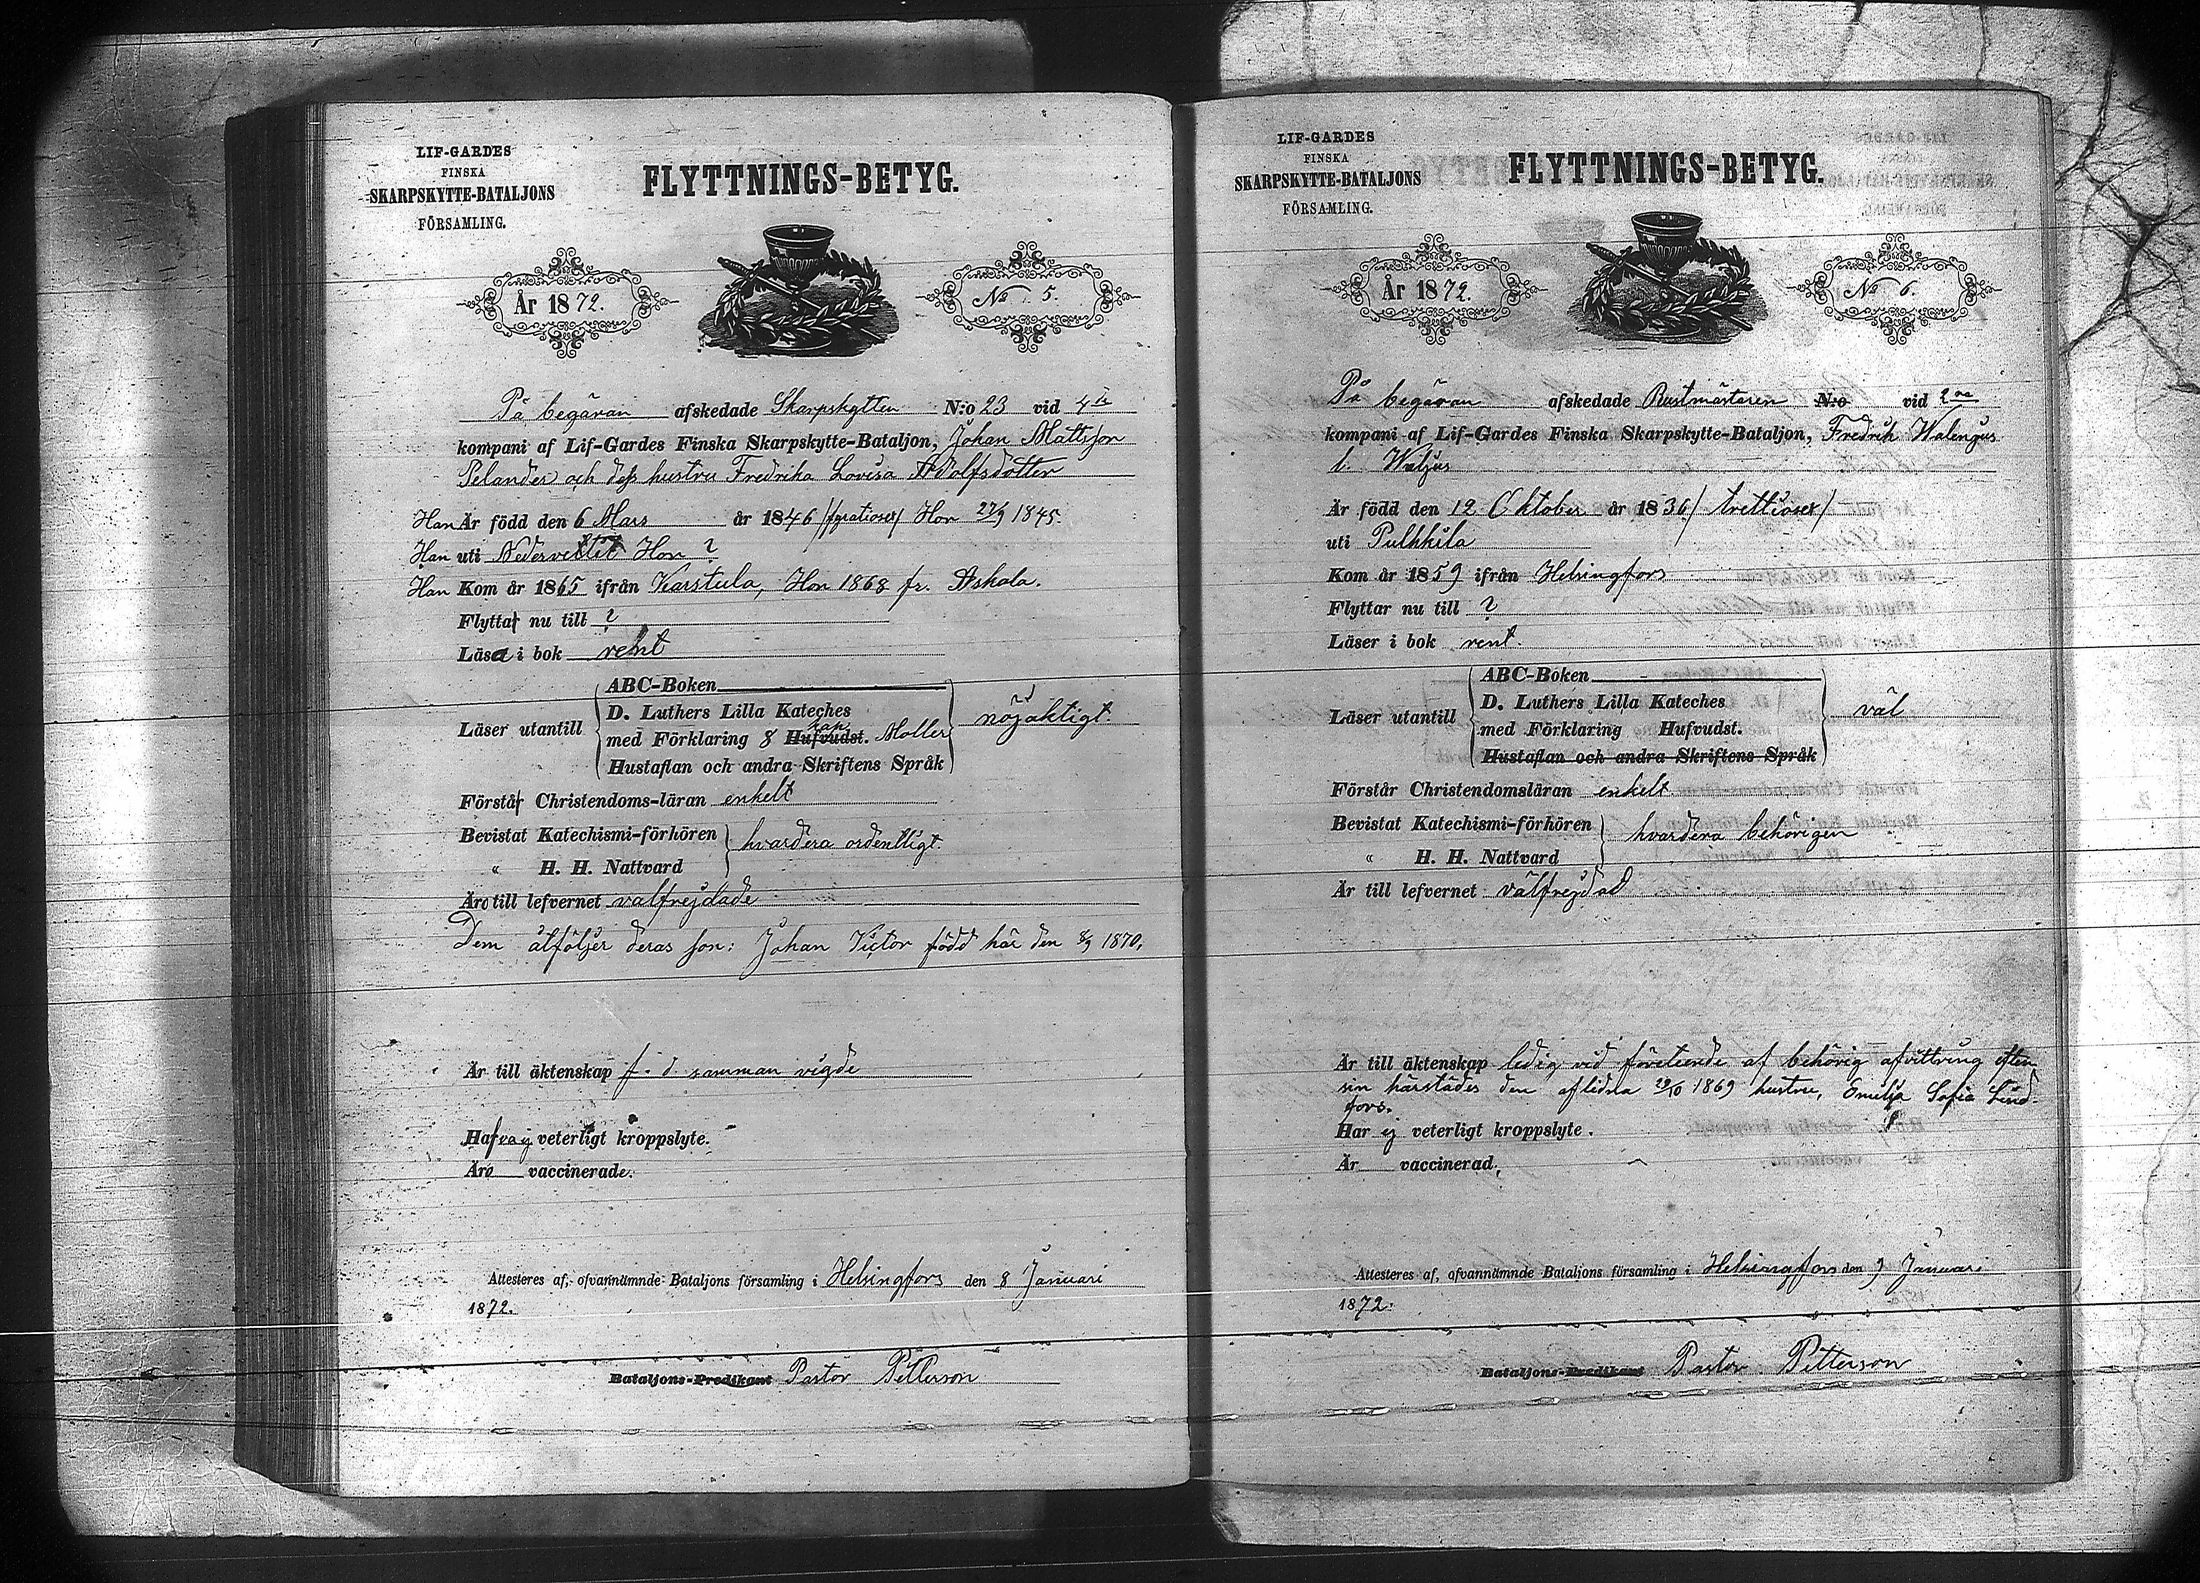 LIF-GARDES
FINSKA
SKARPSKYTTE-BATALJONS
FÖRSAMLING.
FLYTTNINGS-BETYG.
År 1872.
No 5.
På begäran afskedade Skarpskytten N:o 23 vid 4de
kompani af Lif-Gardes Finska Skarpskytte-Bataljon, Johan Mattsson
Pelander och dess hustru Fredrika Lovisa Adolfsdotter
Han Är född den 6 Mars år 1846 /fyratiosex/ Hon 27/9 1845.
Han uti Nedervetil Hon ?
Han Kom år 1865 ifrån Karstula, Hon 1868 fr. Askola.
Flytta nu till ?
Läsa i bok rent
Läser utantill
ABC-Boken
D. Luthers Lilla Kateches
med Förklaring 8 Hufvudst. Moller
Hustaflan och andra Skriftens Språk
nöjaktigt.
Förstå Christendoms-läran enkelt
Bevistat Katechismi-förhören
« H. H. Nattvard
hvardera ordentligt.
Äro till lefvernet välfrejdade
Dem åtföljer deras son: Johan Victor född här den 8/9 1870.
Är till äktenskap f. d. samman vigde
Hafva ej veterligt kroppslyte.
Äro vaccinerade.
Attesteres af, ofvannämnde Bataljons församling i Helsingfors den 8 Januari
1872.
Bataljons-Predikant Pastor Petterson
LIF-GARDES
FINSKA
SKARPSKYTTE-BATALJONS
FÖRSAMLING.
FLYTTNINGS-BETYG.
År 1872.
No 6.
På begäran afskedade Rustmästaren N:o vid 2ra
kompani af Lif-Gardes Finska Skarpskytte-Bataljon, Fredrik Walengus
l. Waljus
Är född den 12 Oktober år 1836 /trettiosex/
uti Pulkkila
Kom år 1859 ifrån Helsingfors
Flyttar nu till ?
Läser i bok rent.
Läser utantill
ABC-Boken
D. Luthers Lilla Kateches
med Förklaring Hufvudst.
Hustaflan och andra Skriftens Språk
väl
Förstår Christendomsläran enkelt
Bevistat Katechismi-förhören
« H. H. Nattvard
hvardera behörigen
Är till lefvernet välfrejdad
Är till äktenskap ledig vid företeende af behörig afvittring efter
sin härstädes den aflidna 29/10 1869 hustru, Emilja Sofia Lind-
fors.
Har ej veterligt kroppslyte.
Är vaccinerad,
Attesteres af, ofvannämnde Bataljons församling i Helsingfors den 9 Januari
1872.
Bataljons-Predikant Pastor Petterson